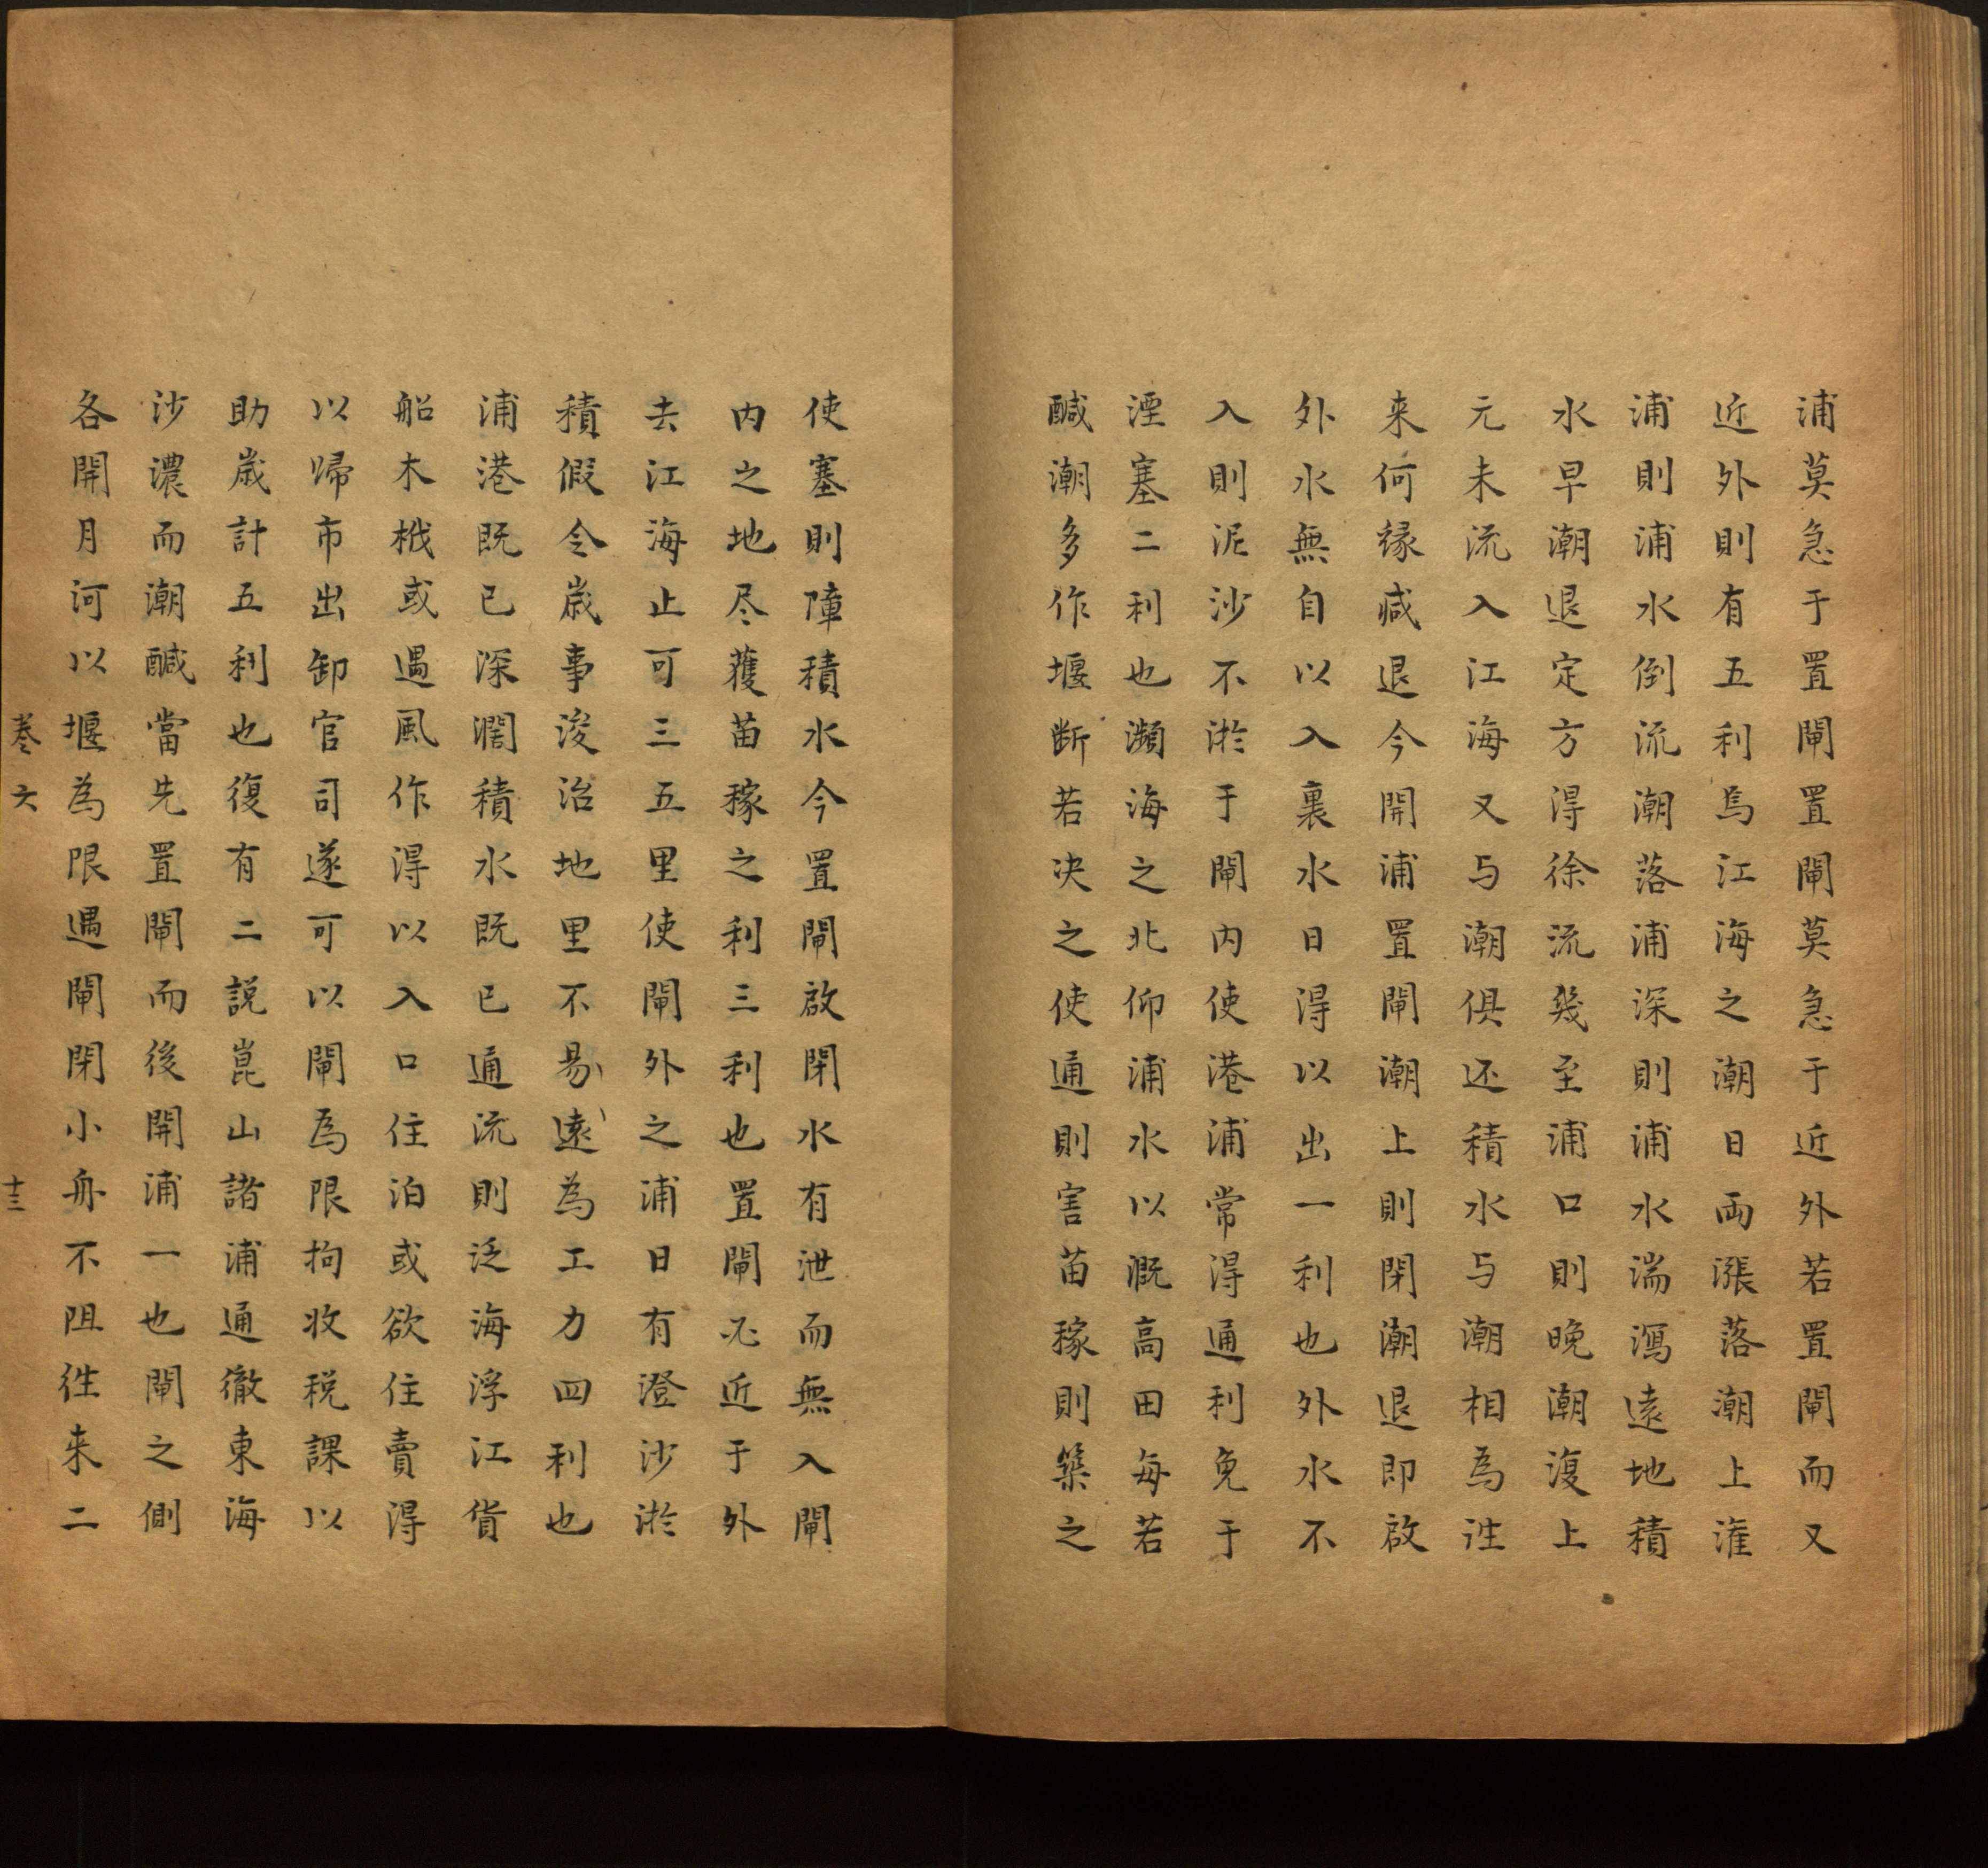 浦莫急于置閘置閘莫急于近外若置閘而又
近外則有五利焉江海之潮日両漲落潮上㴶
浦則浦水倒流潮落浦深則浦水湍瀉逺地積
水早潮退定方得徐流幾至浦口則晚潮復上
元未流入江海又与潮俱还積水与潮相為徃
来何縁減退今開浦置閘潮上則閉潮退即啟
外水無自以入裏水日得以出一利也外水不
入則泥沙不淤于閘内使港浦常得通利免于
湮塞二利也瀕海之北仰浦水以溉高田每若
醎潮多作堰断若决之使通則害苗稼則築之
使塞則障積水今置閘啟閉水有泄而無入閘
内之地尽獲苗稼之利三利也置閘必近于外
去江海止可三五里使閘外之浦日有澄沙淤
積假令歳事浚治地里不易逺為工力四利也
浦港既已深濶積水既已通流則泛海浮江貨
船木栰或遇風作得以入口住泊或欲住賣得
以歸市出卸官司遂可以閘為限拘收税課以
助歳計五利也復有二説崑山諸浦通徹東海
沙濃而潮醎當先置閘而後開浦一也閘之側
各開月河以堰為限遇閘閉小舟不阻徃来二
卷六
十三